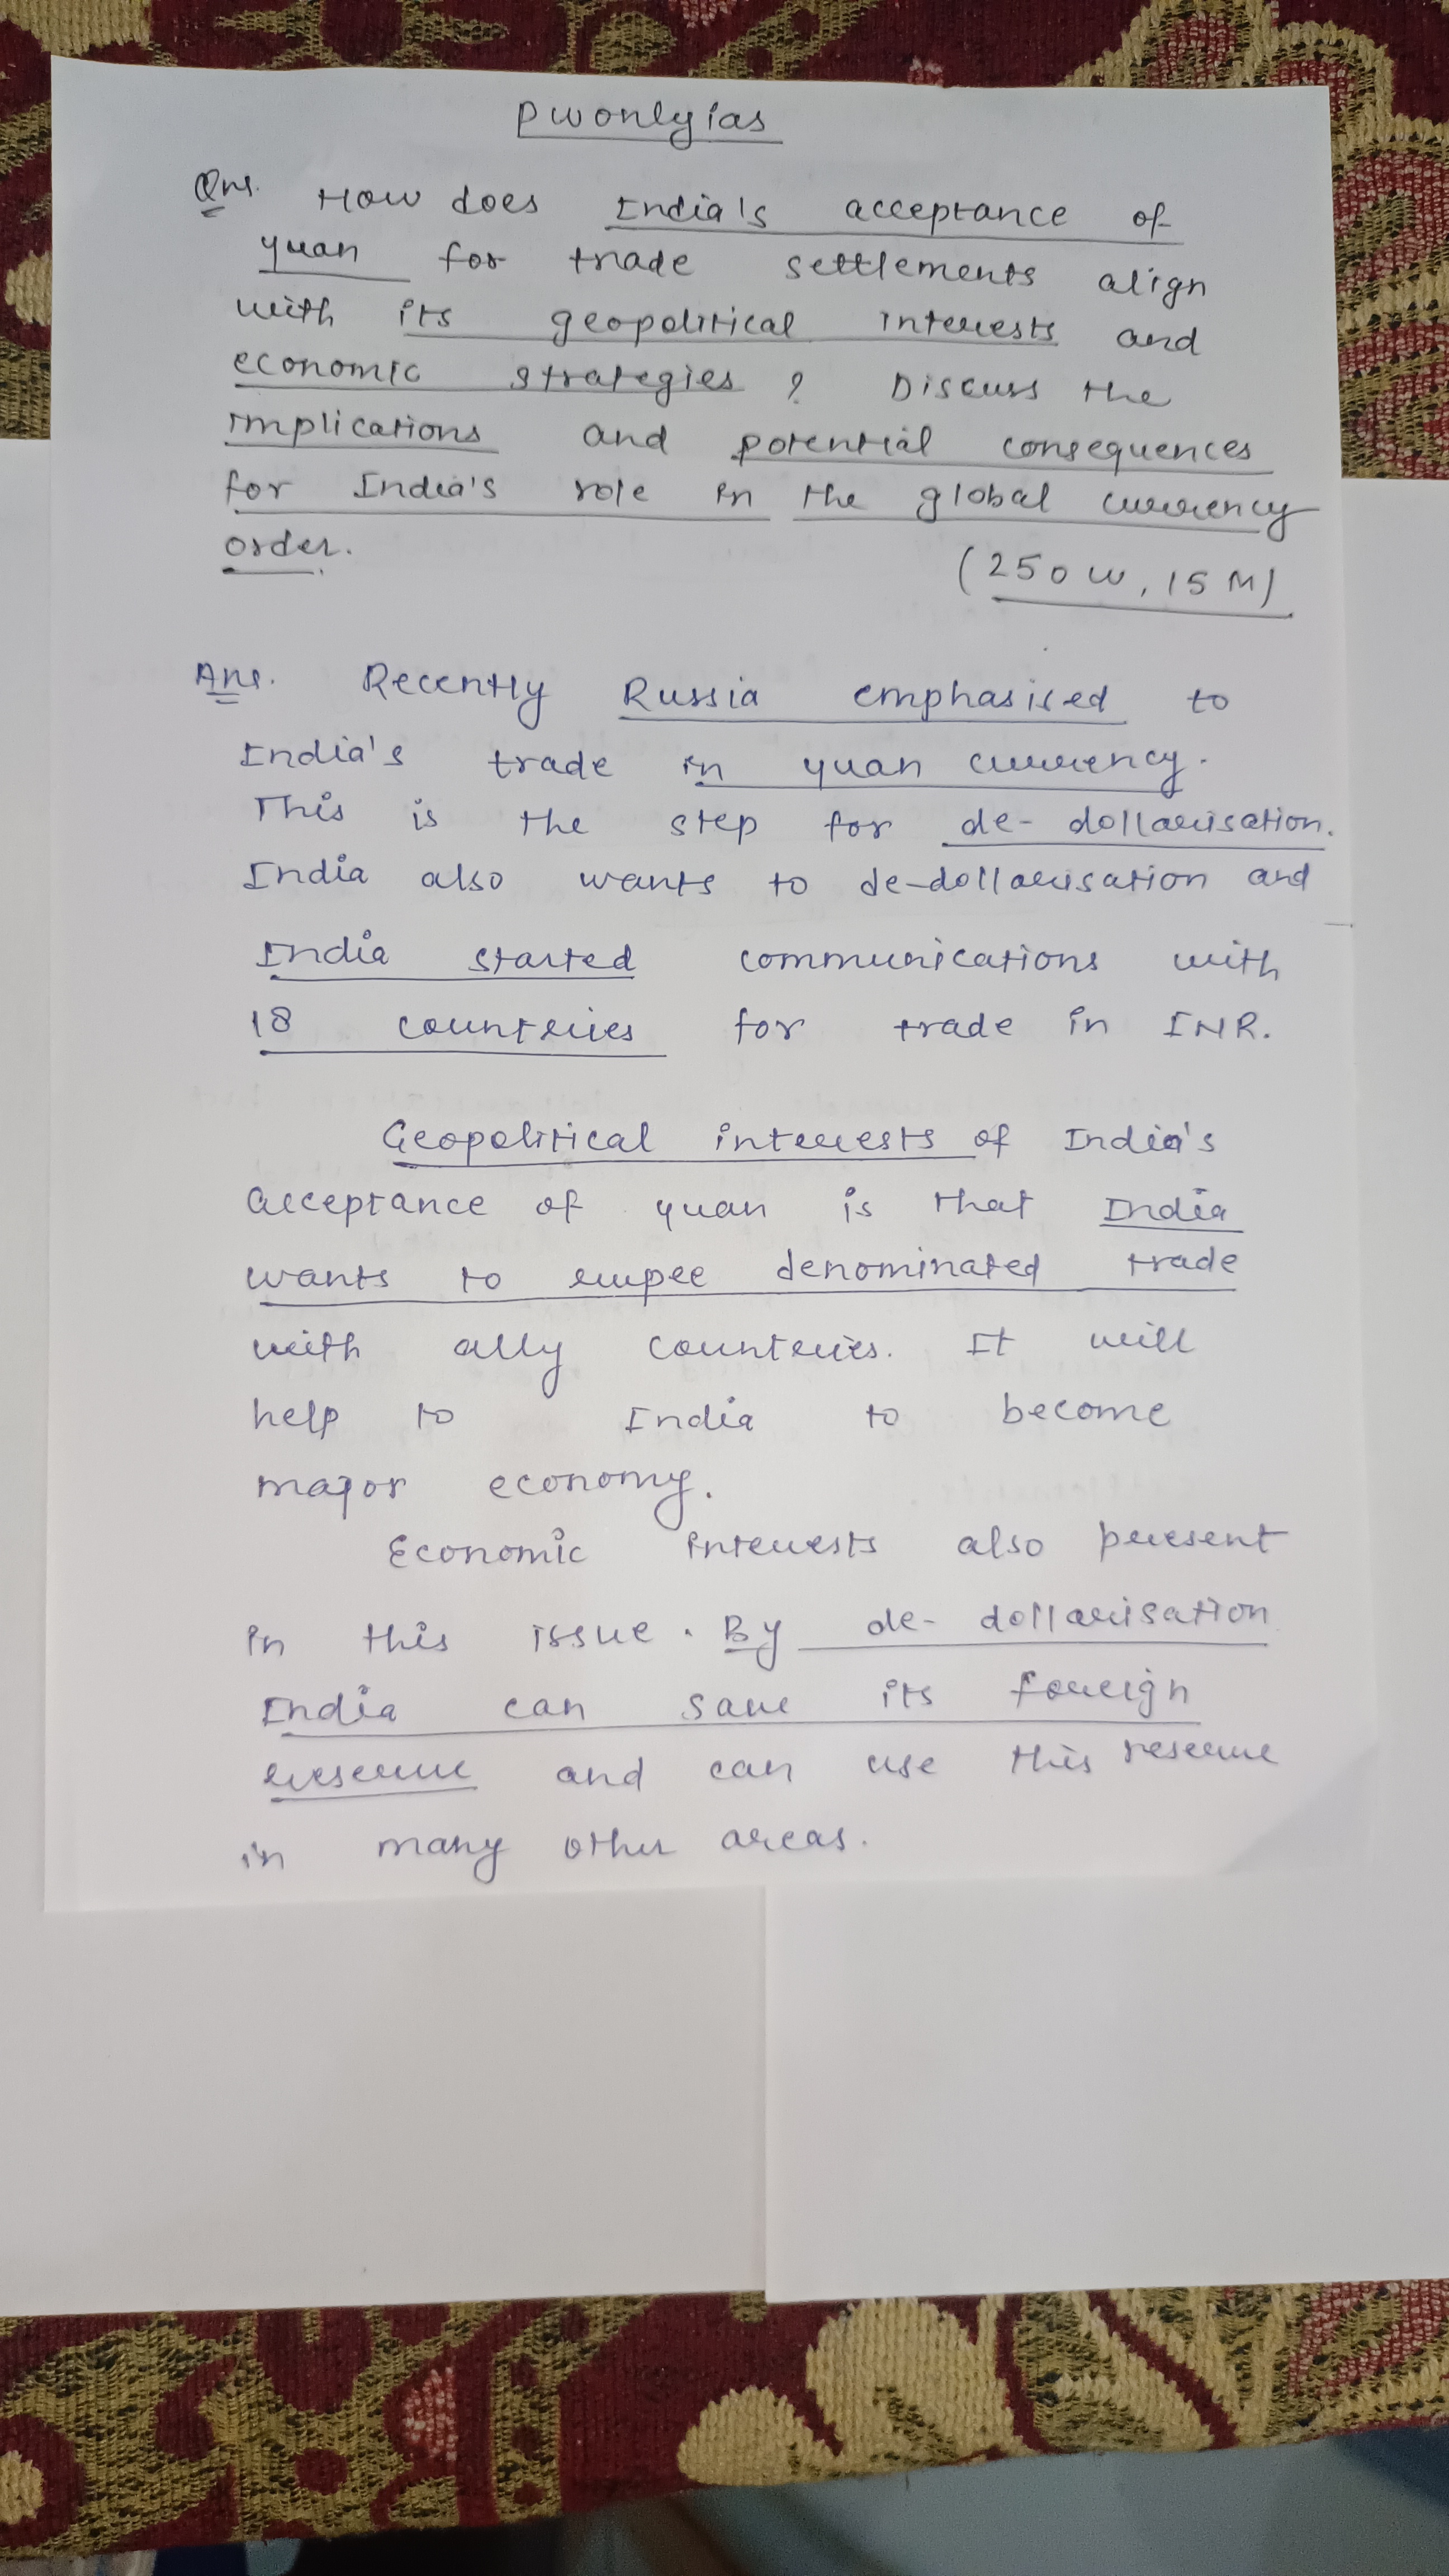 pwonlyias
Qns. How does India's acceptance of
yuan for trade settlements align
with its geopolitical interests and
economic strategies? Discuss the
implications and potential consequences
for India's role in the global currency
order.
(250 W, 15 M)
Ans. Recently Russia emphasised to
India's trade in yuan currency.
This is the step for de-dollarisation.
India also wants to de-dollarisation and
India started communications with
18 countries for trade in INR.
Geopolitical interests of India's
acceptance of yuan is that India
wants to rupee denominated trade
with ally countries. It will
help to India to become
major economy.
Economic interests also present
in this issue. By de-dollarisation
India can save its foreign
reserve and can use this reserve
in many other areas.